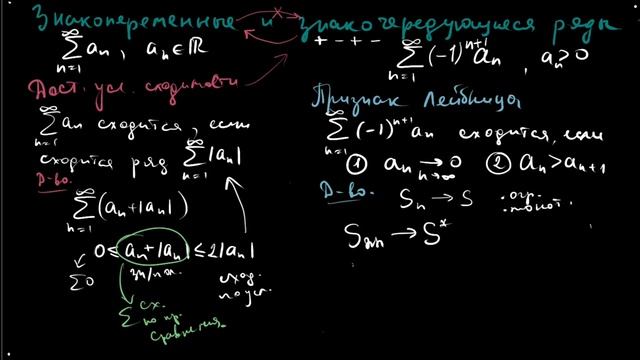 Знакопеременные и знакочередующиеся ряды
∑_{n=1}^{∞} a_n, a_n ∈ ℝ
+ − + −
∑_{n=1}^{∞} (−1)^{n+1} a_n, a_n > 0
Дост. усл. сходимости
∑_{n=1}^{∞} a_n сходится, если
сходится ряд ∑_{n=1}^{∞} |a_n|
Д-во.
∑_{n=1}^{∞} (a_n + |a_n|)
0 ≤ a_n + |a_n| ≤ 2|a_n|
∑0
зн/пол.
сход.
по усл.
∑ сх.
по пр.
сравнения.
Признак Лейбница
∑_{n=1}^{∞} (−1)^{n+1} a_n сходится, если
① a_n → 0
n→∞
② a_n > a_{n+1}
Д-во.
S_n → S
· огр.
· монот.
S_{2n} → S^x